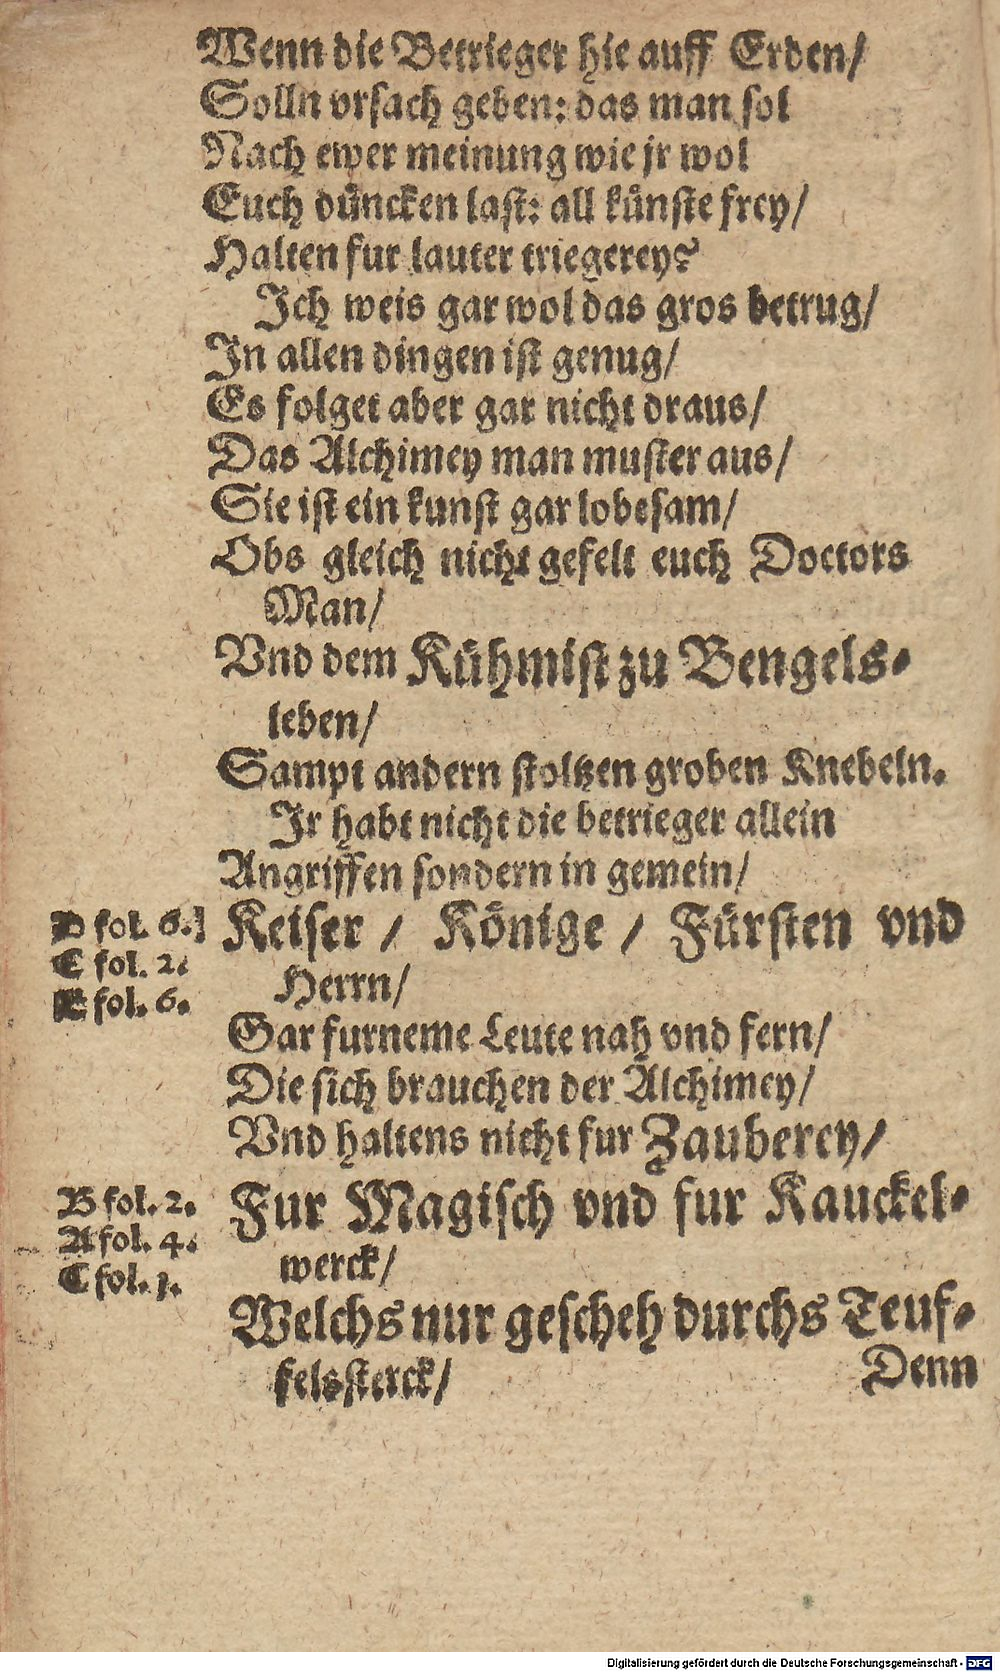 Wenn die Betrieger hie auff Erden/
Solln vrsach geben: das man sol
Nach ewer meinung wie jr wol
Euch düncken last: all künste frey/
Halten fur lauter triegerey?
Ich weis gar wol das gros betrug/
In allen dingen ist genug/
Es folget aber gar nicht draus/
Das Alchimey man muster aus/
Sie ist ein kunst gar lobesam/
Obs gleich nicht gefelt euch Doctors
Man/
Vnd dem Kühmist zu Bengels-
leben/
Sampt andern stoltzen groben Knebeln.
Ir habt nicht die betrieger allein
Angriffen sondern in gemein/
D fol. 6.]
C fol. 2.
E fol. 6.
Keiser / Könige / Fürsten vnd
Herrn/
Gar furneme Leute nah vnd fern/
Die sich brauchen der Alchimey/
Vnd haltens nicht fur Zauberey/
B fol. 2.
A fol. 4.
C fol. 1.
Fur Magisch vnd fur Kauckel-
werck/
Welchs nur gescheh durchs Teuf-
felssterck/
Denn
Digitalisierung gefördert durch die Deutsche Forschungsgemeinschaft - DFG